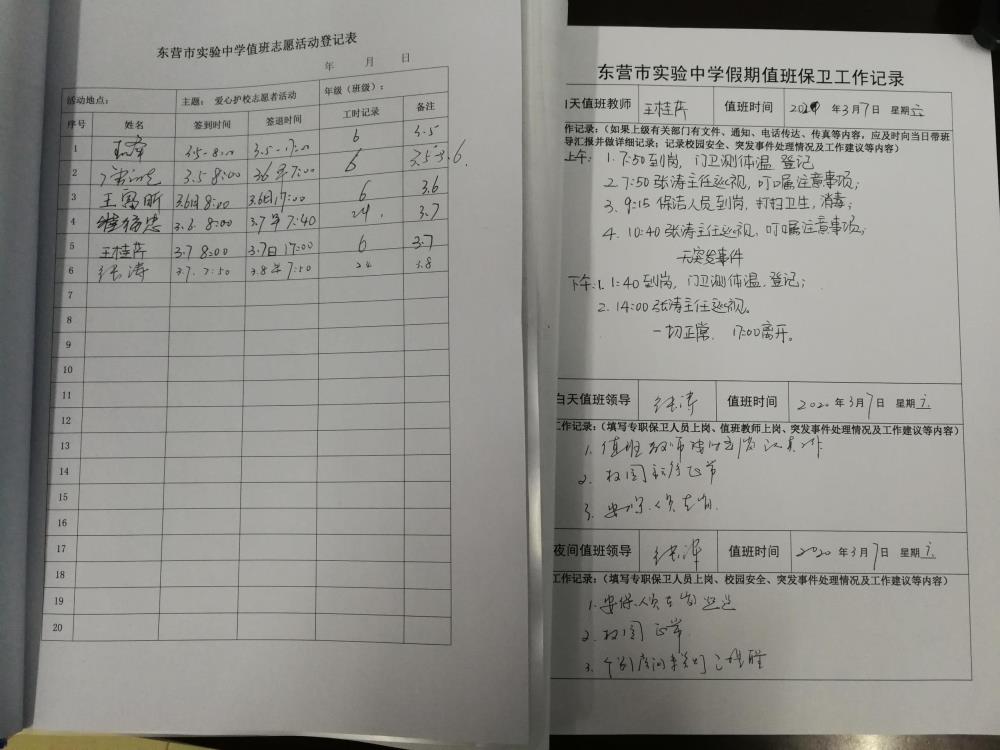 东营市实验中学值班志愿活动登记表
年 月 日
活动地点: 主题: 爱心护校志愿者活动 年级(班级):
序号 姓名 签到时间 签退时间 工时记录 备注
1 3.5-8:00 3.5-17:00 6 3.5
2 3.5 8:00 6 3.5-3.6.
3 王 昕 3.6日8:00 3.6日17:00 6 3.6
4 3.6. 8:00 3.7 7:40 24. 3.7
5 王桂芹 3.7 8:00 3.7日17:00 6 3.7
6 张涛 3.7. 7:50 3.8 7:50 24 3.8
7
8
9
10
11
12
13
14
15
16
17
18
19
20
东营市实验中学假期值班保卫工作记录
白天值班教师 王桂芹 值班时间 2020年3月7日 星期六
作记录:(如果上级有关部门有文件、通知、电话传达、传真等内容,应及时向当日带班
导汇报并做详细记录;记录校园安全、突发事件处理情况及工作建议等内容)
上午: 1. 7:50到岗,门卫测体温、登记
2. 7:50 张涛主任巡视,叮嘱注意事项;
3. 9:15 保洁人员到岗,打扫卫生,消毒;
4. 10:40 张涛主任巡视,叮嘱注意事项;
无突发事件
下午: 1. 1:40到岗,门卫测体温、登记;
2. 14:00 张涛主任巡视。
一切正常. 17:00离开。
白天值班领导 张涛 值班时间 2020年3月7日 星期六
工作记录:(填写专职保卫人员上岗、值班教师上岗、突发事件处理情况及工作建议等内容)
1. 值班教师按时到岗 认真工作
2. 校园 正常
3. 安保人员在岗.
夜间值班领导 张涛 值班时间 2020年3月7日 星期六
工作记录:(填写专职保卫人员上岗、校园安全、突发事件处理情况及工作建议等内容)
1. 安保人员在岗
2. 校园正常
3. 个别房间未关灯 已提醒